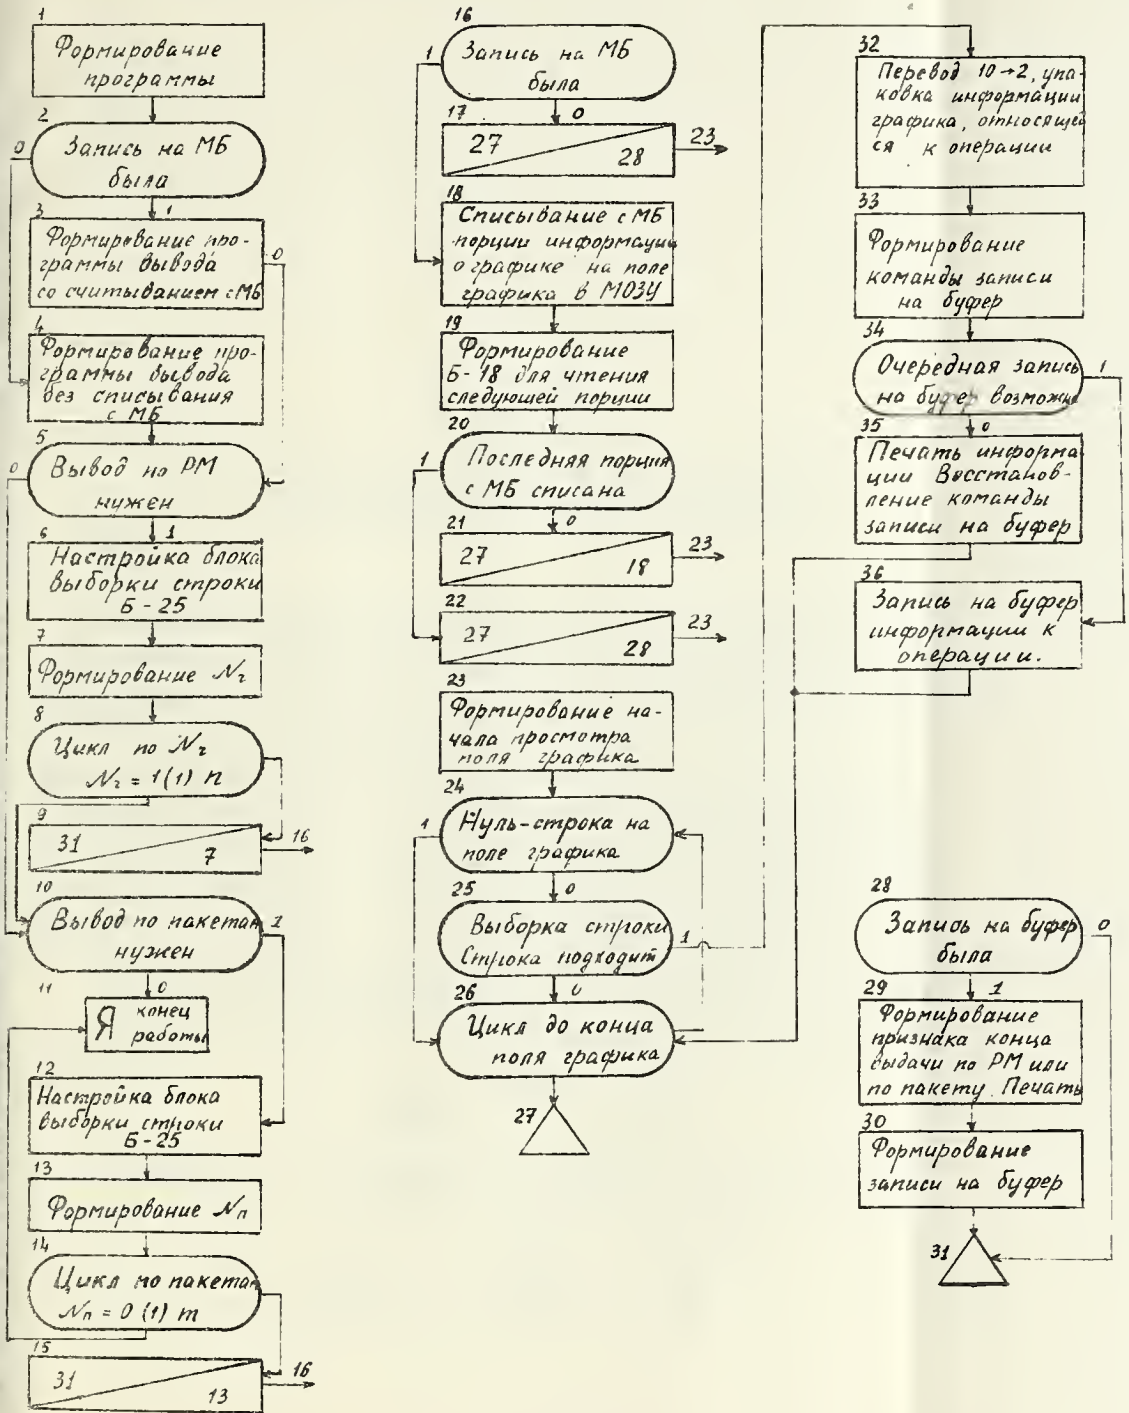 1
Формирование
программы
2
0
Запись на МБ
была
3
1
Формирование про-
граммы вывода
со считыванием с МБ
0
4
Формирование про-
граммы вывода
без списывания
с МБ
5
0
Вывод на РМ
нужен
6
1
Настройка блока
выборки строки
Б-25
7
Формирование
8
Цикл по
= 1(1) n
9
31
7
16
10
Вывод по пакетам
нужен
1
11
0
Я конец
работы
12
Настройка блока
выборки строки
Б-25
13
Формирование Nп
14
Цикл по пакетам
Nп = 0 (1) m
15
31
13
16
16
1
Запись на МБ
была
17
0
27
28
23
18
Списывание с МБ
порции информации
о графике на поле
графика в МОЗУ
19
Формирование
Б-18 для чтения
следующей порции
20
1
Последняя порция
с МБ списана
21
0
27
18
23
22
27
28
23
23
Формирование на-
чала просмотра
поля графика
24
1
Нуль-строка на
поле графика
25
0
Выборка строки
Строка подходит
1
26
0
Цикл до конца
поля графика
27
32
Перевод 10→2, упа-
ковка информации
графика, относящей
ся к операции
33
Формирование
команды записи
на буфер
34
Очередная запись
на буфер возможна
1
35
0
Печать информа
ции Восстанов-
ление команды
записи на буфер
36
Запись на буфер
информации к
операции.
28
Запись на буфер
была
0
29
1
Формирование
признака конца
выдачи по РМ или
по пакету. Печать
30
Формирование
записи на буфер
31